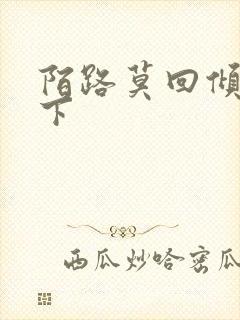 陌路莫回倾
下
西瓜炒哈密瓜